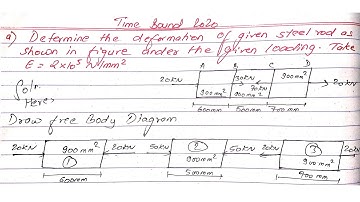 Time Bound 2020
a) Determine the deformation of given steel rod as
shown in figure under the given loading. Take
E = 2×10⁵ N/mm²
A B C D
20KN 30KN 900mm² 20KN
900mm² 900mm²
Soln.
Here,
600mm 500mm 700mm
Draw free Body Diagram
20KN 900mm² 20KN 50KN 900mm² 50KN 20KN 900mm² 20KN
① ② ③
600mm 500mm 900mm